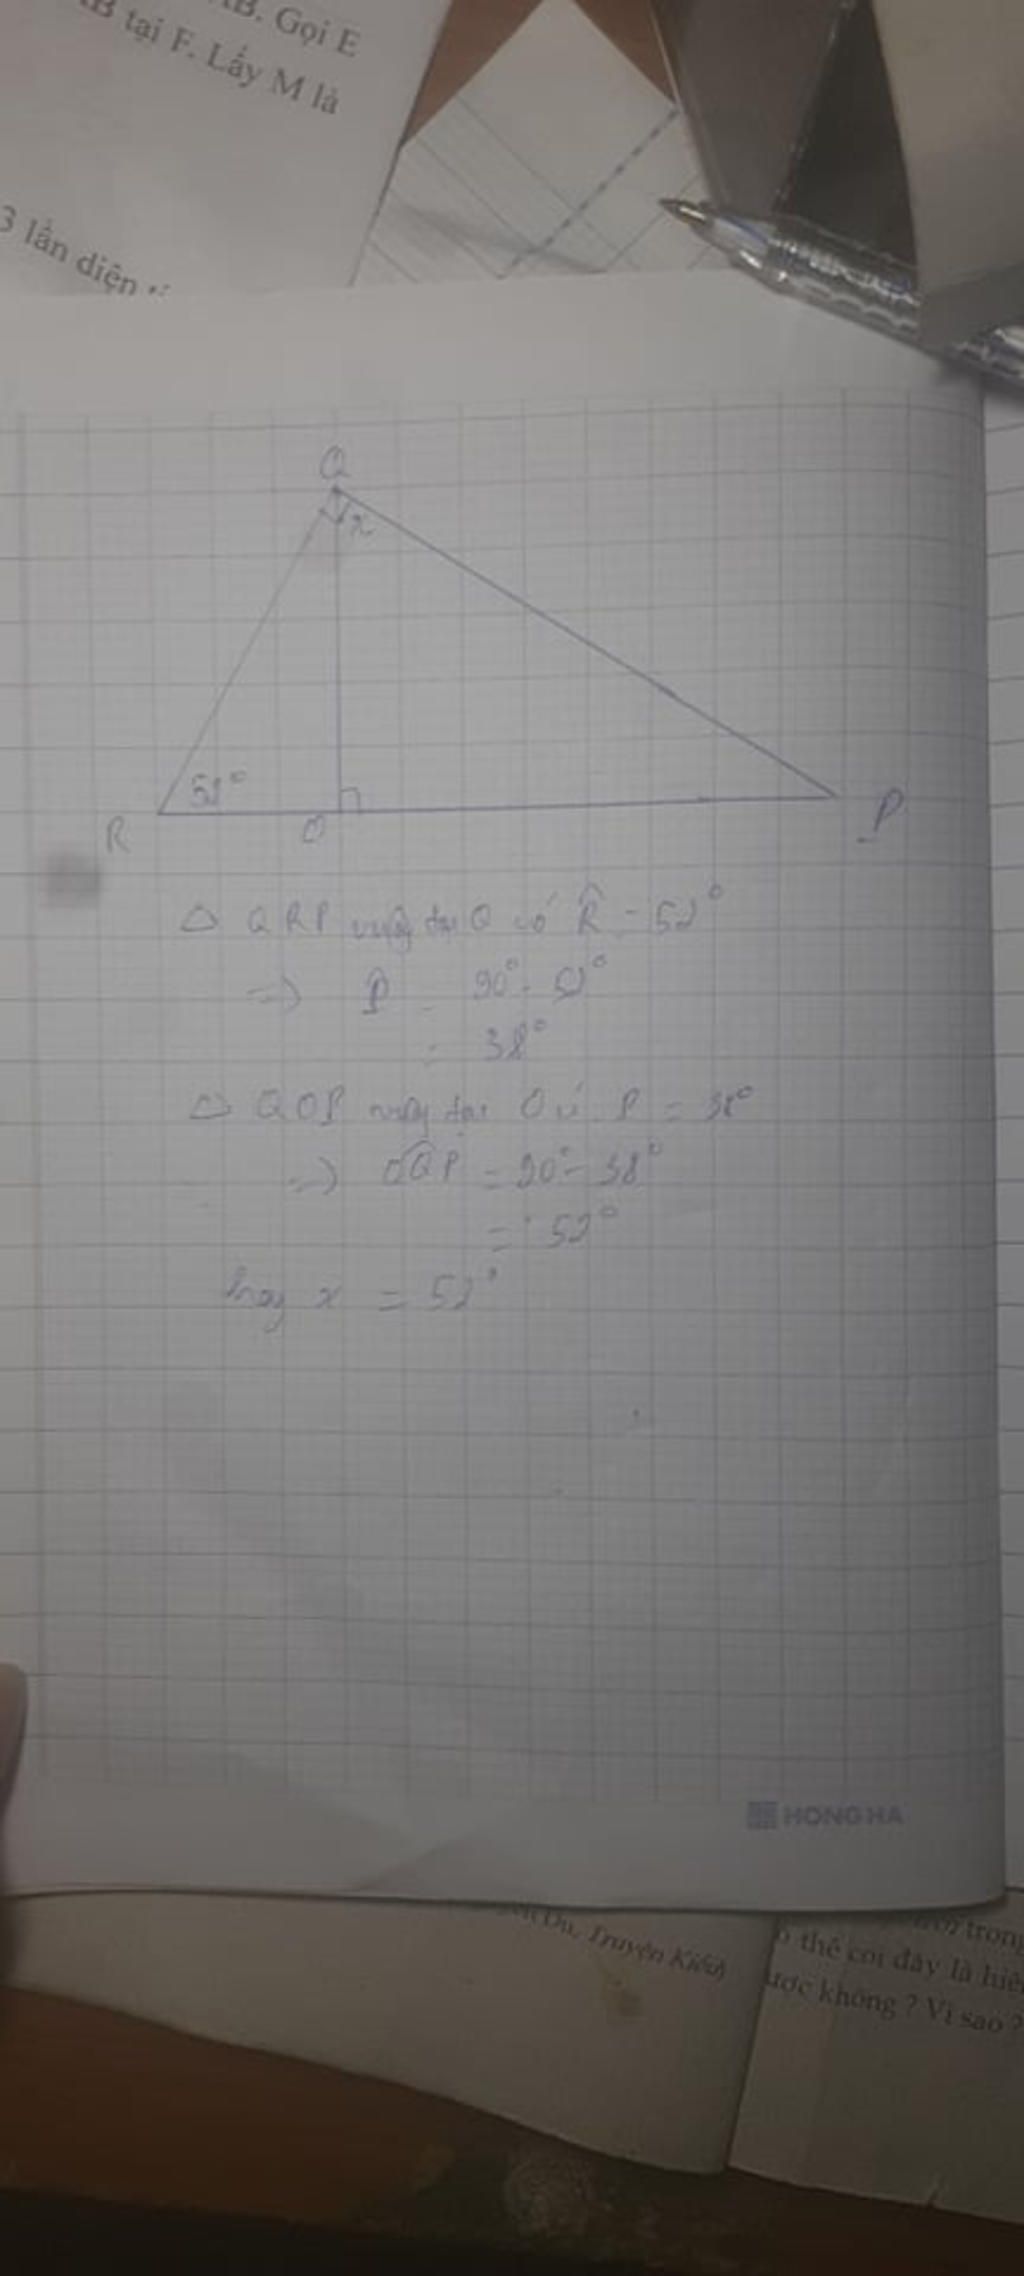 AB. Gọi E
AB tại F. Lấy M là
3 lần diện
Q
x
52°
R
O
P
△ QRP vuông tại Q có R̂ = 52°
=> P̂ = 90° - 52°
= 38°
△ QOP vuông tại O có P = 38°
=> OQP = 90° - 38°
= 52°
hay x = 52°
HONG HA
Du, Truyện Kiều)
trong
thể coi đây là hiện
được không ? Vì sao ?